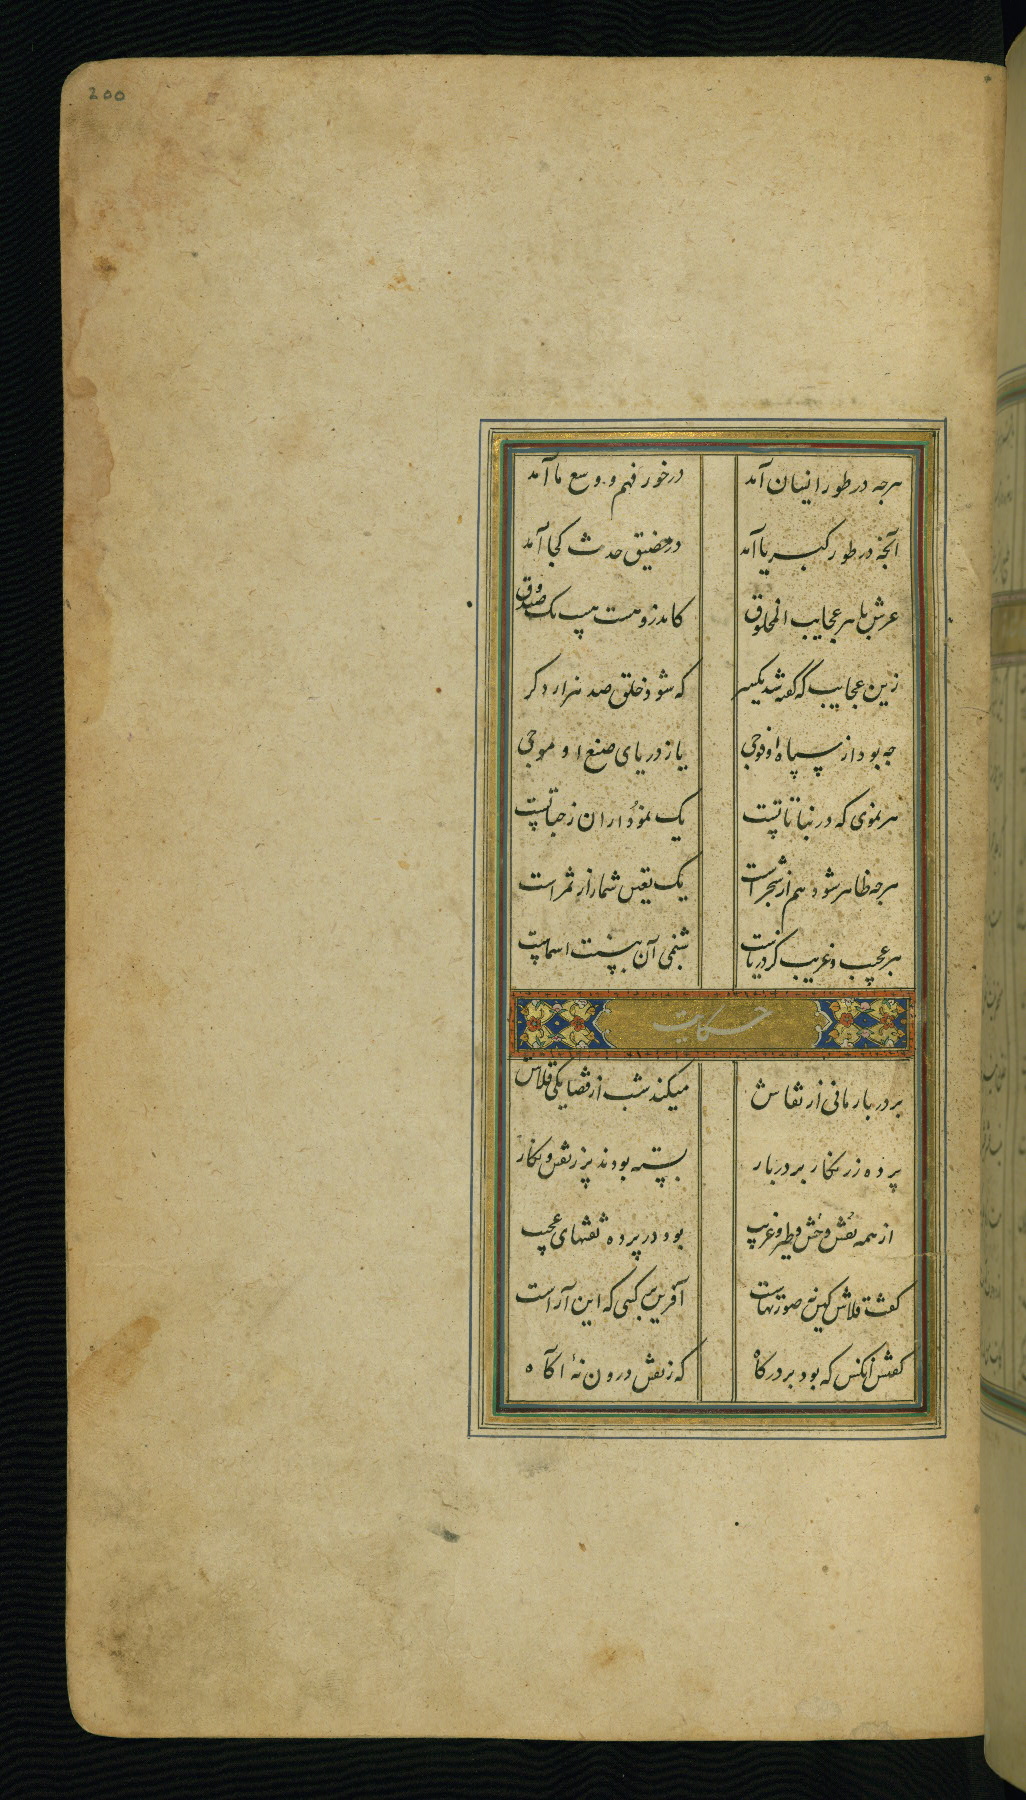 200
هرچه در طور انسان آمد در خور فهم و وسع ما آمد
آنچه در طور کبریا آمد در مضیق حدث کجا آمد
عرش با هر عجایب المخلوق کامد زو هست یک صندوق
زین عجایب که گفته شد یکسر که شود خلق صد هزار دگر
چه بود از سپاه او فوجی یا ز دریای صنع او موجی
هر نموی که در نباتاتست یک نموداران ز حباتست
هرچه ظاهر شود هم از شجر است یک تعین شمار از ثمر است
هر عجیب و غریب کز دریاست شبنمی آن به نسبت اسماست
حکایت
بر در بار مانی از نقاش میکند شب از قضا یکی قلاش
پرده زر نگار بر در بار بسته بودند پر ز نقش و نگار
از همه نقش وحش و طیر و غریب بود در پرده نقشهای عجیب
گفت قلاش کین نه صورتهاست آفرین بر کسی که این آراست
گفتش آنکس که بود بر درگاه که ز نقش درون نهٔ آگاه